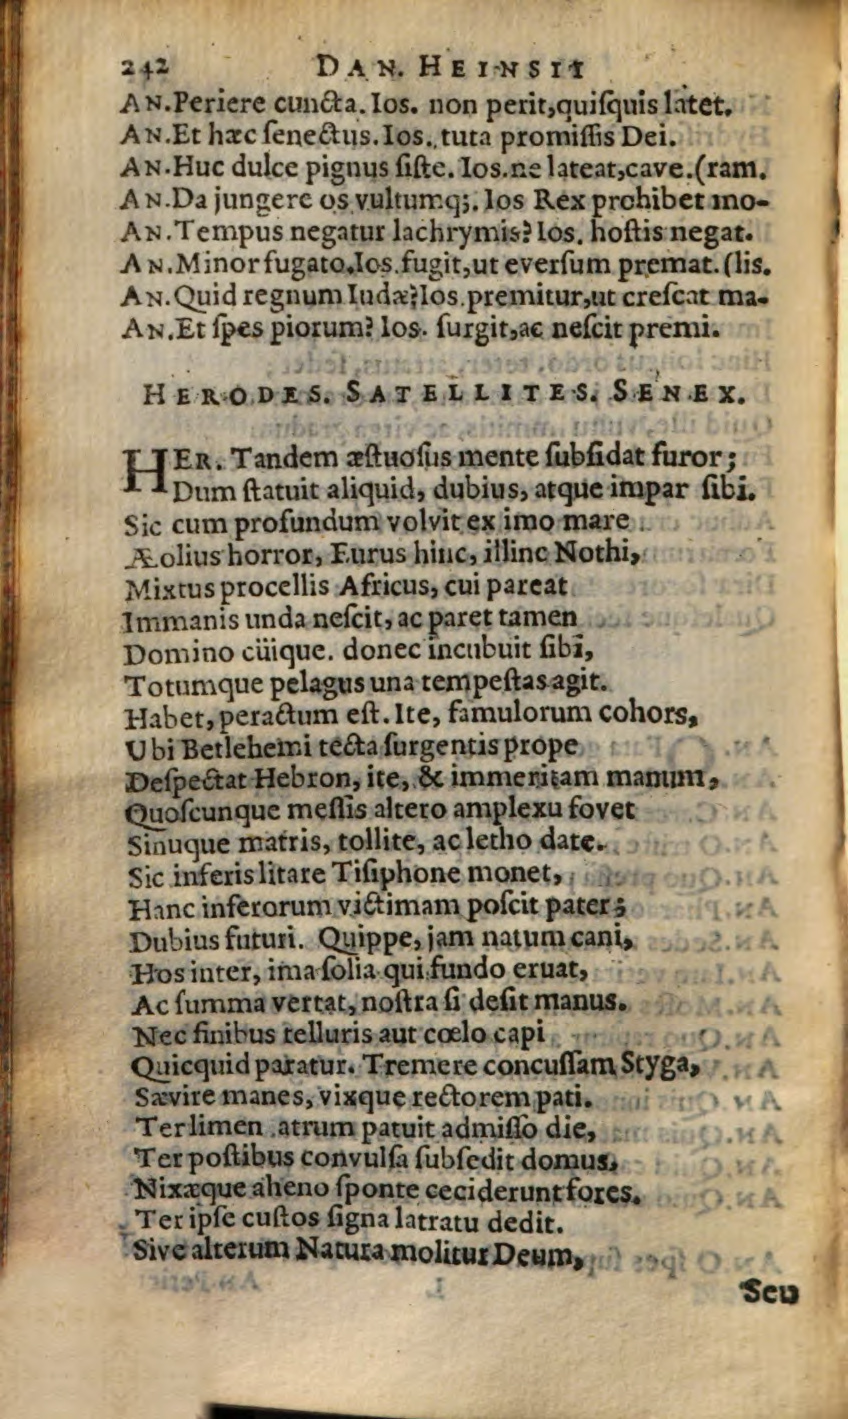 242 DAN. HEINSII
AN.Periere cuncta. Ios. non perit,quiſquis latet.
AN.Et hæc ſenectus. Ios. tuta promiſſis Dei.
AN.Huc dulce pignus ſiſte. Ios.ne lateat,cave.(ram.
AN.Da jungere os vultumq;. Ios Rex prohibet mo-
AN.Tempus negatur lachrymis? Ios. hoſtis negat.
AN.Minor fugato. Ios.fugit,ut everſum premat.(lis.
AN.Quid regnum Iudæ? Ios.premitur,ut creſcat ma-
AN.Et ſpes piorum? Ios. ſurgit,ac neſcit premi.
HERODES. SATELLITES. SENEX.
HER. Tandem æſtuoſus mente ſubſidat furor;
Dum ſtatuit aliquid, dubius, atque impar ſibi.
Sic cum profundum volvit ex imo mare
Æolius horror, Eurus hinc, illinc Nothi,
Mixtus procellis Africus, cui pareat
Immanis unda neſcit, ac paret tamen
Domino cüique. donec incubuit ſibi,
Totumque pelagus una tempeſtas agit.
Habet, peractum eſt. Ite, famulorum cohors,
Ubi Betlehemi tecta ſurgentis prope
Deſpectat Hebron, ite, & immeritam manum,
Quoſcunque meſſis altero amplexu fovet
Sinuque matris, tollite, ac letho date.
Sic inferis litare Tiſiphone monet,
Hanc inferorum victimam poſcit pater;
Dubius futuri. Quippe, jam natum cani,
Hos inter, ima ſolia qui fundo eruat,
Ac ſumma vertat, noſtra ſi deſit manus.
Nec finibus telluris aut cœlo capi
Quicquid paratur. Tremere concuſſam Styga,
Sævire manes, vixque rectorem pati.
Ter limen atrum patuit admiſſo die,
Ter poſtibus convulſa ſubſedit domus,
Nixæque aheno ſponte ceciderunt fores.
Ter ipſe cuſtos ſigna latratu dedit.
Sive alterum Natura molitur Deum,
Seu